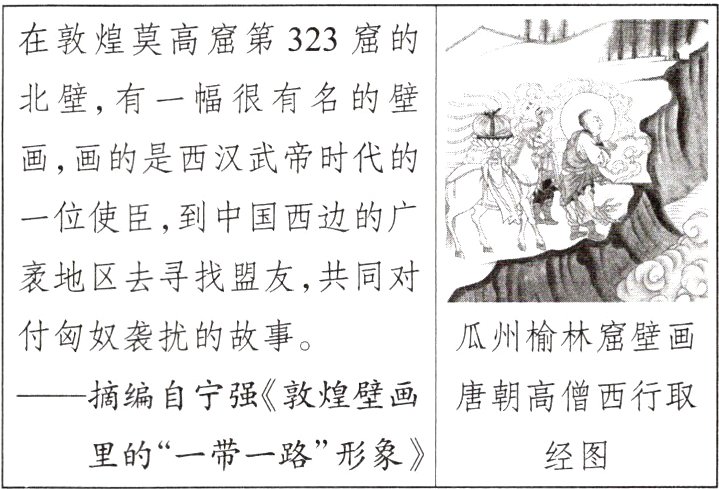 在敦煌莫高窟第 323 窟的
北壁,有一幅很有名的壁
画,画的是西汉武帝时代的
一位使臣,到中国西边的广
袤地区去寻找盟友,共同对
付匈奴袭扰的故事。
——摘编自宁强《敦煌壁画
里的“一带一路”形象》
瓜州榆林窟壁画
唐朝高僧西行取
经图